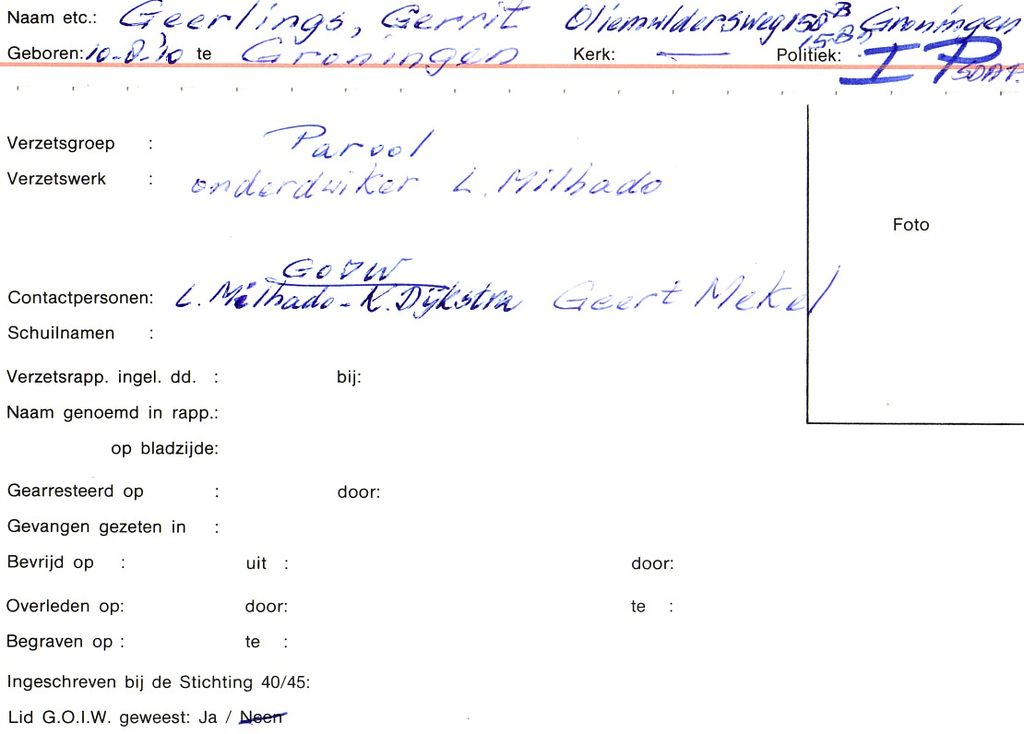 Naam etc.: Geerlings, Gerrit Oliemuldersweg 150 B Groningen
15-8-
Geboren: 10-8-'10 te Groningen Kerk: — Politiek: SDAP.
IP
Verzetsgroep : Parool
Verzetswerk : onderduiker L. Milhado
Foto
GOIW
Contactpersonen: L. Milhado - K. Dijkstra Geert Mekel
Schuilnamen :
Verzetsrapp. ingel. dd. : bij:
Naam genoemd in rapp.:
op bladzijde:
Gearresteerd op : door:
Gevangen gezeten in :
Bevrijd op : uit : door:
Overleden op: door: te :
Begraven op : te :
Ingeschreven bij de Stichting 40/45:
Lid G.O.I.W. geweest: Ja / Neen